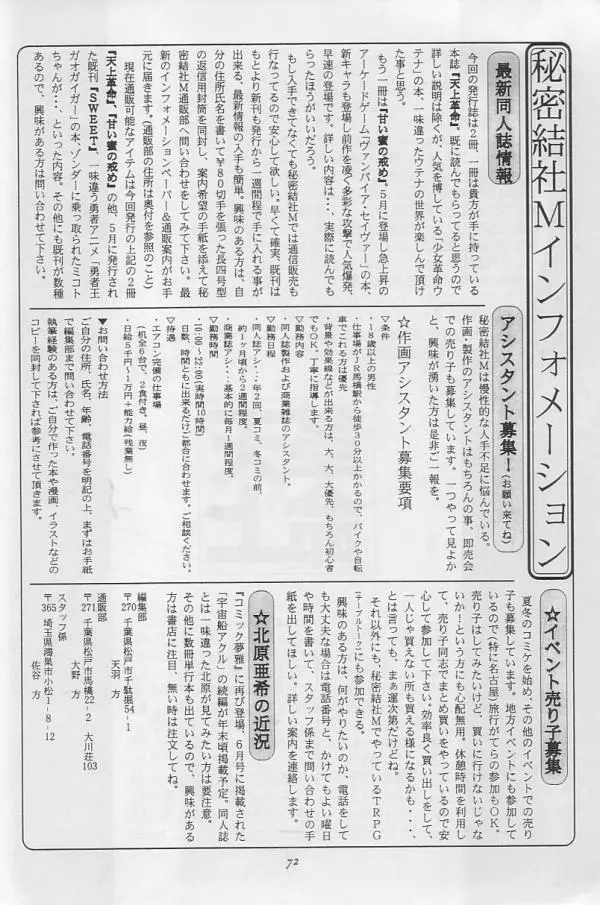 秘密結社Mインフォメーション
最新同人誌情報
今回の発行誌は2冊、一冊は貴方が手に持っている
本誌『天上革命』、既に読んでもらってると思うので
詳しい説明は除くが、人気を博している「少女革命ウ
テナ」の本、一味違ったウテナの世界が楽しんで頂け
た事と思う。
もう一冊は『甘い蜜の戒め』。5月に登場し急上昇の
アーケードゲーム「ヴァンパイア・セイヴァー」の本、
新キャラも登場し前作を凌ぐ多彩な攻撃で人気爆発、
早速の登場です。詳しい内容は・・、実際に読んでも
らったほうがいいだろう。
もし入手できてなくても秘密結社Mでは通信販売も
行なってるので安心して欲しい。早くて確実、既刊は
もとより新刊も発行から一週間程で手に入れる事が
出来る、最新情報の入手も簡単。興味のある方は、自
分の住所氏名を書いて￥80切手を張った長四号型
の返信用封筒を同封し、案内希望の手紙を添えて秘
密結社M通販部へ問い合わせをしてみて下さい。最
新のインフォメーションペーパー&通販案内がお手
元に届きます。(通販部の住所は奥付を参照のこと)
現在通販可能なアイテムは今回発行の上記の2冊
『天上革命』、『甘い蜜の戒め』の他、5月に発行され
た既刊『SWEET』、一味違う勇者アニメ「勇者王
ガオガイガー」の本。ゾンダーに乗っ取られたミコト
ちゃんが・・、といった内容。その他にも既刊が数種
あるので、興味がある方は問い合わせて下さい。
アシスタント募集!(お願い来てね)
秘密結社Mは慢性的な人手不足に悩んでいる。
作画・製作のアシスタントはもちろんの事、即売会
での売り子も募集しています。一つやって見よか
と、興味が湧いた方は是非ご一報を。
☆作画アシスタント募集要項
▼条件
・18歳以上の男性
・仕事場がJR馬橋駅から徒歩30分以上かかるので、バイクや自転
車でこれる方は優先
・背景や効果線などが出来る方は、大、大、大優先、もちろん初心者
でもOK、丁寧に指導します。
▼勤務内容
・同人誌製作および商業雑誌のアシスタント。
▼勤務日程
・同人誌アシ・・・年2回、夏コミ、冬コミの前、
約1ヶ月頃から2週間程度。
・商業誌アシ・・・基本的に毎月1週間程度。
▼勤務時間
・10:00～22:00(実時間10時間)
日数、時間ともに出来るだけご都合に合わせます。ご相談ください。
▼待遇
・エアコン完備の仕事場
(机全6台で、2食付き、昼、夜)
・日給5千円～1万円+能力給(残業無し)
▼お問い合わせ方法
ご自分の住所、氏名、年齢、電話番号を明記の上、まずはお手紙
で編集部まで問い合わせて下さい。
執筆経験のある方は、ご自分で作った本や漫画、イラストなどの
コピーを同封して下されば参考にさせて頂きます。
☆イベント売り子募集
夏冬のコミケを始め、その他のイベントでの売り
子も募集しています。地方イベントにも参加して
いるので(特に名古屋)旅行がてらの参加もOK。
売り子はしてみたいけど、買いに行けないじゃな
いか!という方にも心配無用。休憩時間を利用し
て、売り子同志でまとめ買いをやっているので安
心して参加して下さい。効率良く買い出しをして、
一人じゃ買えない所も買える様になるかも・・・、
とは言っても、まぁ運次第だけどね。
それ以外にも、秘密結社MでやっているTRPG
(テーブルトーク)にも参加できる。
興味のある方は、何がやりたいのか、電話をして
も大丈夫な場合は電話番号と、かけてもよい曜日
や時間を書いて、スタッフ係まで問い合わせの手
紙を出してほしい。詳しい案内を連絡します。
☆北原亜希の近況
『コミック夢雅』に再び登場、6月号に掲載された
「宇宙船アクル」の続編が年末頃掲載予定。同人誌
とは一味違った北原が見てみたい方は要注意。
その他に数冊単行本も出ているので、興味がある
方は書店に注目、無い時は注文してね。
編集部
〒270 千葉県松戸市千駄堀54-1
天羽 方
通販部
〒271 千葉県松戸市馬橋22-2 大川荘103
大野 方
スタッフ係
〒365 埼玉県鴻巣市小松1-8-12
佐谷 方
72